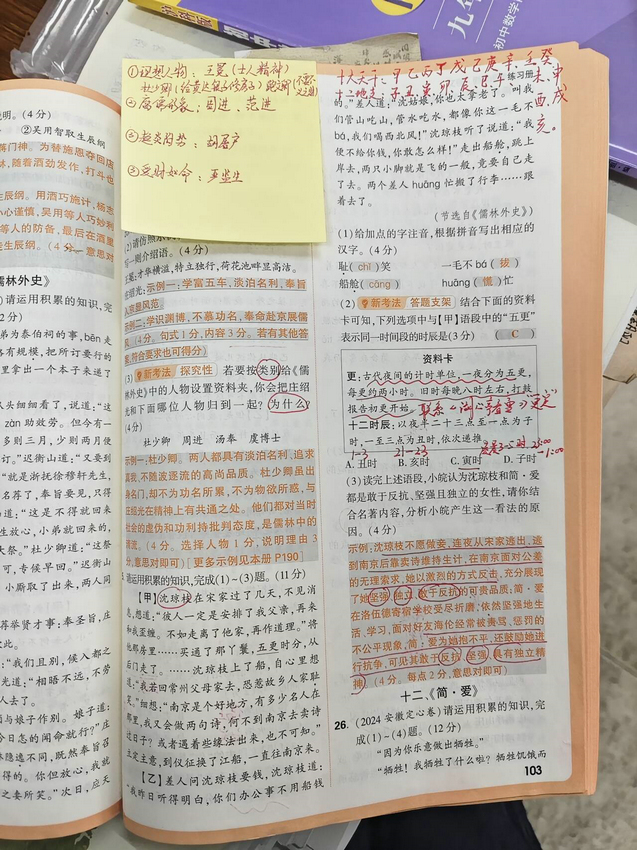 九年
初中数学
①理想人物：王冕（士人精神）
杜少卿
②腐儒形象：周进、范进
③趋炎附势：胡屠户
③爱财如命：严监生
十天干：甲乙丙丁戊己庚辛壬癸
十二地支：子丑寅卯辰巳午未申
酉戌
亥。
练习册
说明。(4分)
②吴用智取生辰纲
蒋门神。为替施恩夺回店
林,随着酒劲发作,打斗也
生辰纲。用酒巧施计,杨志
小心谨慎,吴用等人巧妙利
等人的防备,最后在酒里
生辰纲。(4分。意思对
儒林外史》
)请运用积累的知识,完
2分)
弟为泰伯祠的事,bēn走
各有规模,把所订要的
里拿出一个本子来递了
从头细细看了,说道:“这
zàn助效劳。但今有一
多则三月,少则两月便
订。”迟衡山道:“又要到
“就是浙抚徐穆轩先生,
名荐了,奉旨要见,只得
道:“这是不得就回来
生放心,小弟就回来的,
大祭。”杜少卿道:“这祭
可,专候早回。”迟衡山
小厮取了出来,两人同
荐举贤才事:奉圣旨,庄
此。
“我们且别,候入都之
光道:“相晤不远,不劳
人去了。
与娘子作别。娘子道:
今日怎的闻命就行?”庄
林隐逸不同,既然奉旨召
得的。你但放心,我就
之妻所笑。”次日,应天
(2)请仿照示
写一则介绍语。(4分)
:才华横溢,特立独行,荷花池畔显高洁。
绍光:示例一:学富五车,淡泊名利,奉旨
风范。
示例二:学识渊博,不慕功名,奉命赴京展儒
风(4分。句式1分,内容3分。若有其他答
案,符合要求也可得分)
(3)新考法 探究性 若要按类别给《儒
林外史》中的人物设置资料夹,你会把庄绍
光和下面哪位人物归到一起?为什么?
(4分)
杜少卿 周进 汤奉 虞博士
示例一:杜少卿。两人都具有淡泊名利,追求
真我,不随波逐流的高尚品质。杜少卿虽出
身名门,却不为功名所累,不为物欲所惑,与
庄绍光在精神上有共通之处。他们都对当时
社会的虚伪和功利持批判态度,是儒林中的
清流。(4分。选择人物1分,说明理由3
分,意思对即可)[更多示例见本册P190]
请运用积累的知识,完成(1)~(3)题。(11分)
【甲】沈琼枝在宋家过了几天,不见消
息,想道:“彼人一定是安排了我父亲,再来
和我歪缠。不如走离了他家,再作道理。”将
他那房里……买通了那丫鬟,五更时分,从
后门走了。……沈琼枝上了船,自心里想
道:“我若回常州父母家去,恐惹故乡人家耻
笑。”细想:“南京是个好地方,有多少名人在
那里,我又会做两句诗,何不到南京去卖诗
过日子?或者遇着些缘法出来,也不可知。”
立定主意,到仪征换了江船,一直往南京来。
【乙】差人问沈琼枝要钱,沈琼枝道:
“我昨日听得明白,你们办公事不用船钱
的。”差人道:“沈姑娘,你也太拿老了。叫我
们管山吃山,管水吃水,都像你这一毛不
bá,我们喝西北风!”沈琼枝听了说道:“我
便不给你钱,你敢怎么样!”走出船舱,跳上
岸去,两只小脚就是飞的一般,竟要自己走
了去。两个差人huāng忙搬了行李……跟
着去了。
(节选自《儒林外史》)
(1)给加点的字注音,根据拼音写出相应的
汉字。(4分)
耻(chǐ)笑 一毛不bá(拔)
船舱(cāng) huāng(慌)忙
(2)新考法 答题支架 结合下面的资料
卡可知,下列选项中与【甲】语段中的“五更”
表示同一时间段的时辰是(3分) (C)
资料卡
更:古代夜间的计时单位,一夜分为五更,
每更约两小时。旧时每晚八时左右,打鼓
报告初更开始。
十二时辰:以夜半二十三点至一点为子
时,一至三点为丑时,依次递推。
1-3 21-23
A.丑时 B.亥时 C.寅时 D.子时
(3)读完上述语段,小皖认为沈琼枝和简·爱
都是敢于反抗、坚强且独立的女性,请你结
合名著内容,分析小皖产生这一看法的原
因。(4分)
示例:沈琼枝不愿做妾,连夜从宋家逃出,逃
到南京后靠卖诗维持生计,在南京面对公差
的无理索求,她以激烈的方式反击,充分展现
了她坚强、独立、敢于反抗的可贵品质;简·爱
在洛伍德寄宿学校受尽折磨,依然坚强地生
活、学习,面对好友海伦经常被责骂、惩罚的
不公平现象,简·爱为她抱不平,还鼓励她进
行抗争,可见其敢于反抗、坚强、具有独立精
神。(4分。每点2分,意思对即可)
十二、《简·爱》
26.(2024安徽定心卷)请运用积累的知识,完
成(1)~(4)题。(12分)
“因为你乐意做出牺牲。”
“牺牲!我牺牲了什么啦?牺牲饥饿而
103